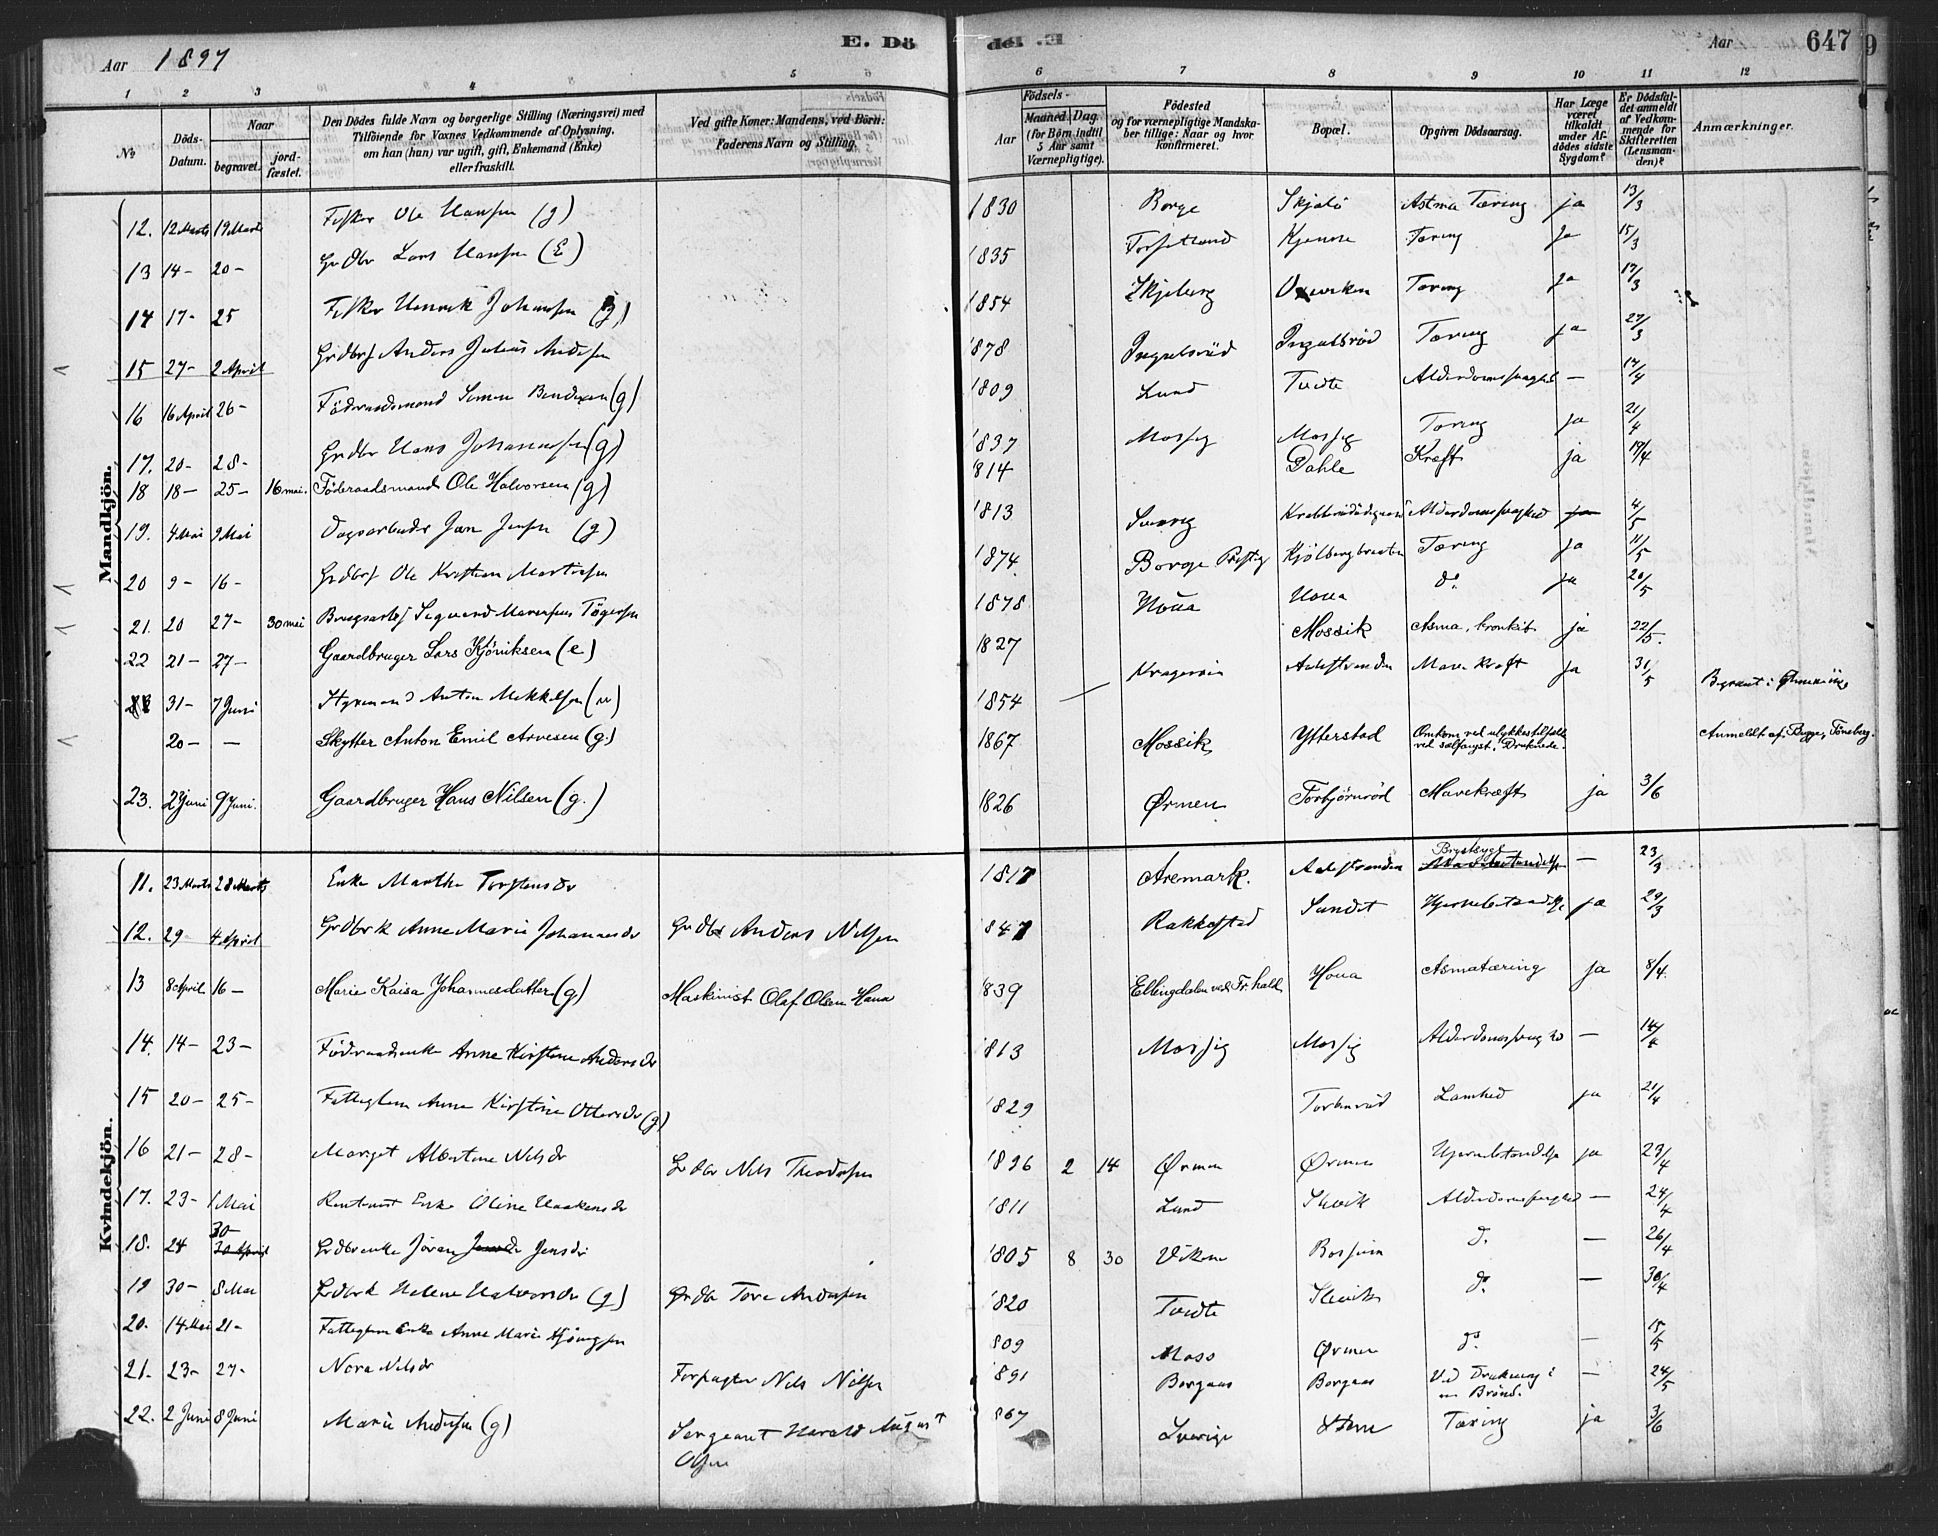 Aar 1897
E. Dö
Aar 647
1 2 3 4 5 6
6 7 8 9 10 11 12
No
Döds-Datum.
Naar
begravet.
jord-fæstet.
Den Dödes fulde Navn og borgerlige Stilling (Næringsvei) med
Tilföiende for Voxnes Vedkommende af Oplysning,
om han (hun) var ugift, gift, Enkemand (Enke)
eller fraskilt.
Ved gifte Koner: Mandens, ved Börn:
Faderens Navn og Stilling.
Födsels-
Aar
Maaned. Dag.
(for Börn indtil
5 Aar samt
Værnepligtige).
Födested
og for værnepligtige Mandska-
ber tillige: Naar og hvor
konfirmeret.
Bopæl.
Opgiven Dödsaarsag.
Har Læge
været
tilkaldt
under Af-
dödes sidste
Sygdom?
Er Dödsfal-
det anmeldt
af Vedkom-
mende for
Skifteretten
(Lensman-
den)?
Anmærkninger.
Mandkjön.
12. 12 Marts 19 Marts Fisker Ole Hansen (g) 1830 Borge Skjælö Astma Tæring ja 13/3
13 14- 20- Grdbr Lars Hansen (E) 1835 Torsekand Kjenne Tæring ja 15/3
14 17- 25 Fisker Henrik Johansen (g) 1854 Skjeberg Tæring ja 17/3
15 27- 2 April Grdbrs Anders Julius Andersen 1878 Ingulsröd Ingulsröd Tæring ja 27/3
16 16 April 26- Föderaadsmand Simen Bendixen (g) 1809 Lund Tvedte Alderdomssvaghed — 17/4
17. 20- 28- Grdbr Hans Johannesen (g) 1837 Mossig Mossig Tæring ja 21/4
18 18- 25- 16 mai. Föderaadsmand Ole Halvorsen (g) 1814 Dahle Kræft ja 19/4
19. 4 Mai 9 Mai Dagsarbeider Jan Jensen (g) 1813 Sverig Alderdomssvaghed ja 4/5
20 9- 16- Grdbrs Ole Kristian Martinsen 1874 Borge Prestg Kjölbergbraaten Tæring ja 11/5
21. 20 27- 30 mai Brugsarbs Sigvard Marensius Tögersen 1878 Houa Houa do. ja 20/5
22 21- 27- Gaardbruger Lars Kjöniksen (e) 1827 Mossik Asma, bronkit ja 22/5.
31- 7 Juni Styrmand Anton Mikkelsen (u) 1854 Krageröen Aalestranden Mavekræft ja 31/5 Begravet i
20- — Skytter Anton Emil Arvesen (g.) 1867 Mossik Ytterstad Omkom ved ulykkestilfælde
ved sælfangst. Druknede. Anmeldt af Brgge, Tönsberg.
23. 2 Juni 9 Juni. Gaardbruger Hans Nilsen (g.) 1826 Ørmen Torbjörnröd Mavekræft ja 3/6
Kvindekjön.
11. 23 Marts 28 Marts Enke Marthe Torstensdr 1817 Aremark. Aalestranden Brystsyge — 23/3
12. 29 4 April Grdbrk Anne Marie Johannesdr Grdbr Anders Nilsen 1847 Rakkestad Sundet Hjernebetændelse ja 29/3
13 8 April 16- Marie Kaisa Johannesdatter (g) Maskinist Olaf Olsen Haua 1839 Ellingdalen ved Fr.hald Houa Asmatæring ja 8/4.
14. 14- 23- Föderaadsenke Anne Kirstine Andersdr 1813 Mossig Mossig Alderdomssvaghed — 14/4
15 20- 25- Fattiglem Anne Kirstine Ottersdr (g) 1829 Torbnröd Lamhed ja 21/4
16 21- 28- Margit Albertine Nilsdr Grdbr Nils Theodorsen 1896 2 14 Ørmen Ørmen Hjernebetændelse ja 23/4
17. 23- 1 Mai Enke Oline Haakensdr 1811 Lund Slevik Alderdomssvaghed — 24/4
18. 24 30- 30 April Grdbrenke Jöran Jensdr 1805 8 30 Viken do. — 26/4
19 30- 8 Mai Grdbrk Helene Halvorsdr (g) Grdbr Tore Andersen 1820 Tvedte Slevik do. — 30/4
20. 14 Mai 21- Fattiglem Enke Anne Marie 1809 Moss Ørmen do. — 15/5
21. 23- 27- Nora Nilsdr Forpagter Nils Nilsen 1891 Borgaas Borgaas Ved Drukning i
en Brönd. — 24/5
22. 2 Juni 8 Juni Marie Andersen (g) Sergeant Harald August
Olsen 1867 Sverige Tæring ja 3/6